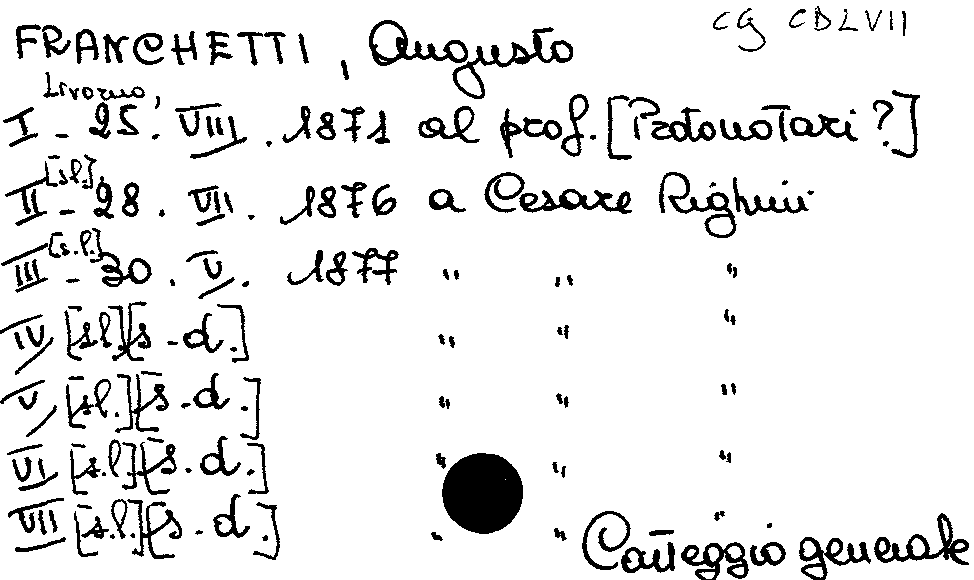 CG CDLVII
FRANCHETTI, Augusto
I - Livorno, 25. VIII. 1871 al prof. [Protonotari?]
II - [s.l], 28. VII. 1876 a Cesare Righini
III - [s.l.] 30. V. 1877 " " "
IV [s.l][s.d.] " " "
V [s.l.][s.d.] " " "
VI [s.l][s.d.] " " "
VII [s.l.][s.d.] " " "
Carteggio generale